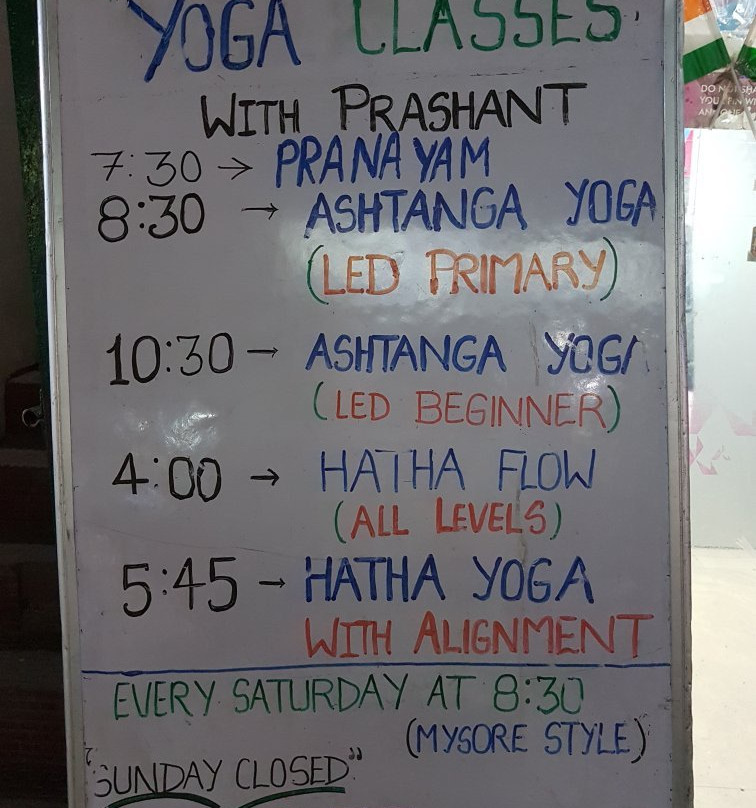 YOGA CLASSES
WITH PRASHANT
7:30 → PRANAYAM
8:30 → ASHTANGA YOGA
(LED PRIMARY)
10:30 → ASHTANGA YOGA
(LED BEGINNER)
4:00 → HATHA FLOW
(ALL LEVELS)
5:45 → HATHA YOGA
WITH ALIGNMENT
EVERY SATURDAY AT 8:30
(MYSORE STYLE)
"SUNDAY CLOSED"
DO NOT
YOU